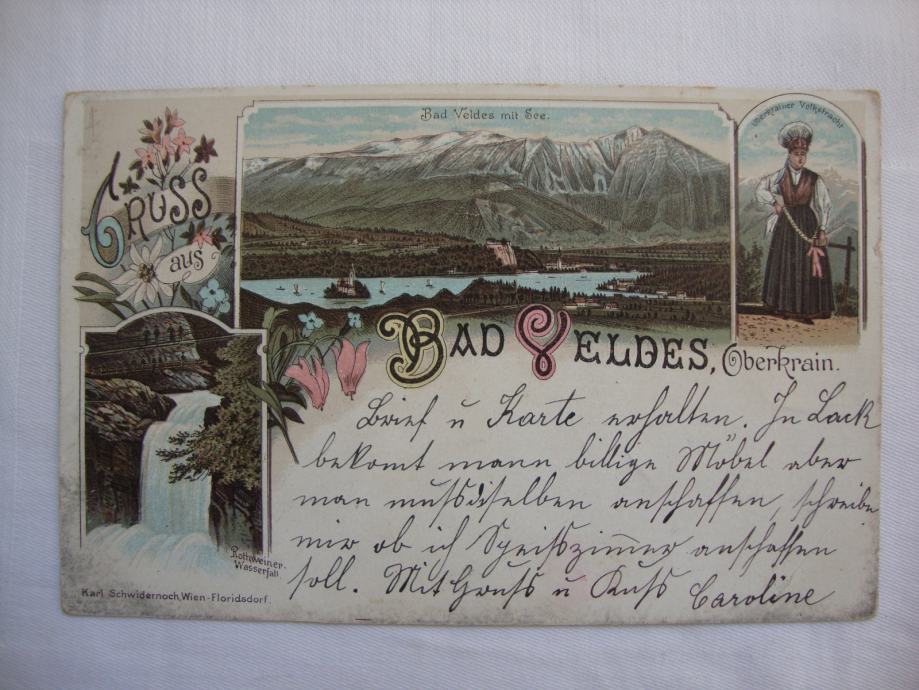 Gruss
aus
Bad Veldes mit See.
Oberkrainer Volkstracht
Bad Veldes, Oberkrain.
Rothweiner-
Wasserfall
Karl Schwidernoch, Wien-Floridsdorf.
Brief u Karte erhalten. In Lack
bekomt mann billige Möbel aber
man mussdiselben anschaffen, schreibe
mir ob ich Speisszim̅er anschaffen
soll. Mit Gruss u Kuss Caroline